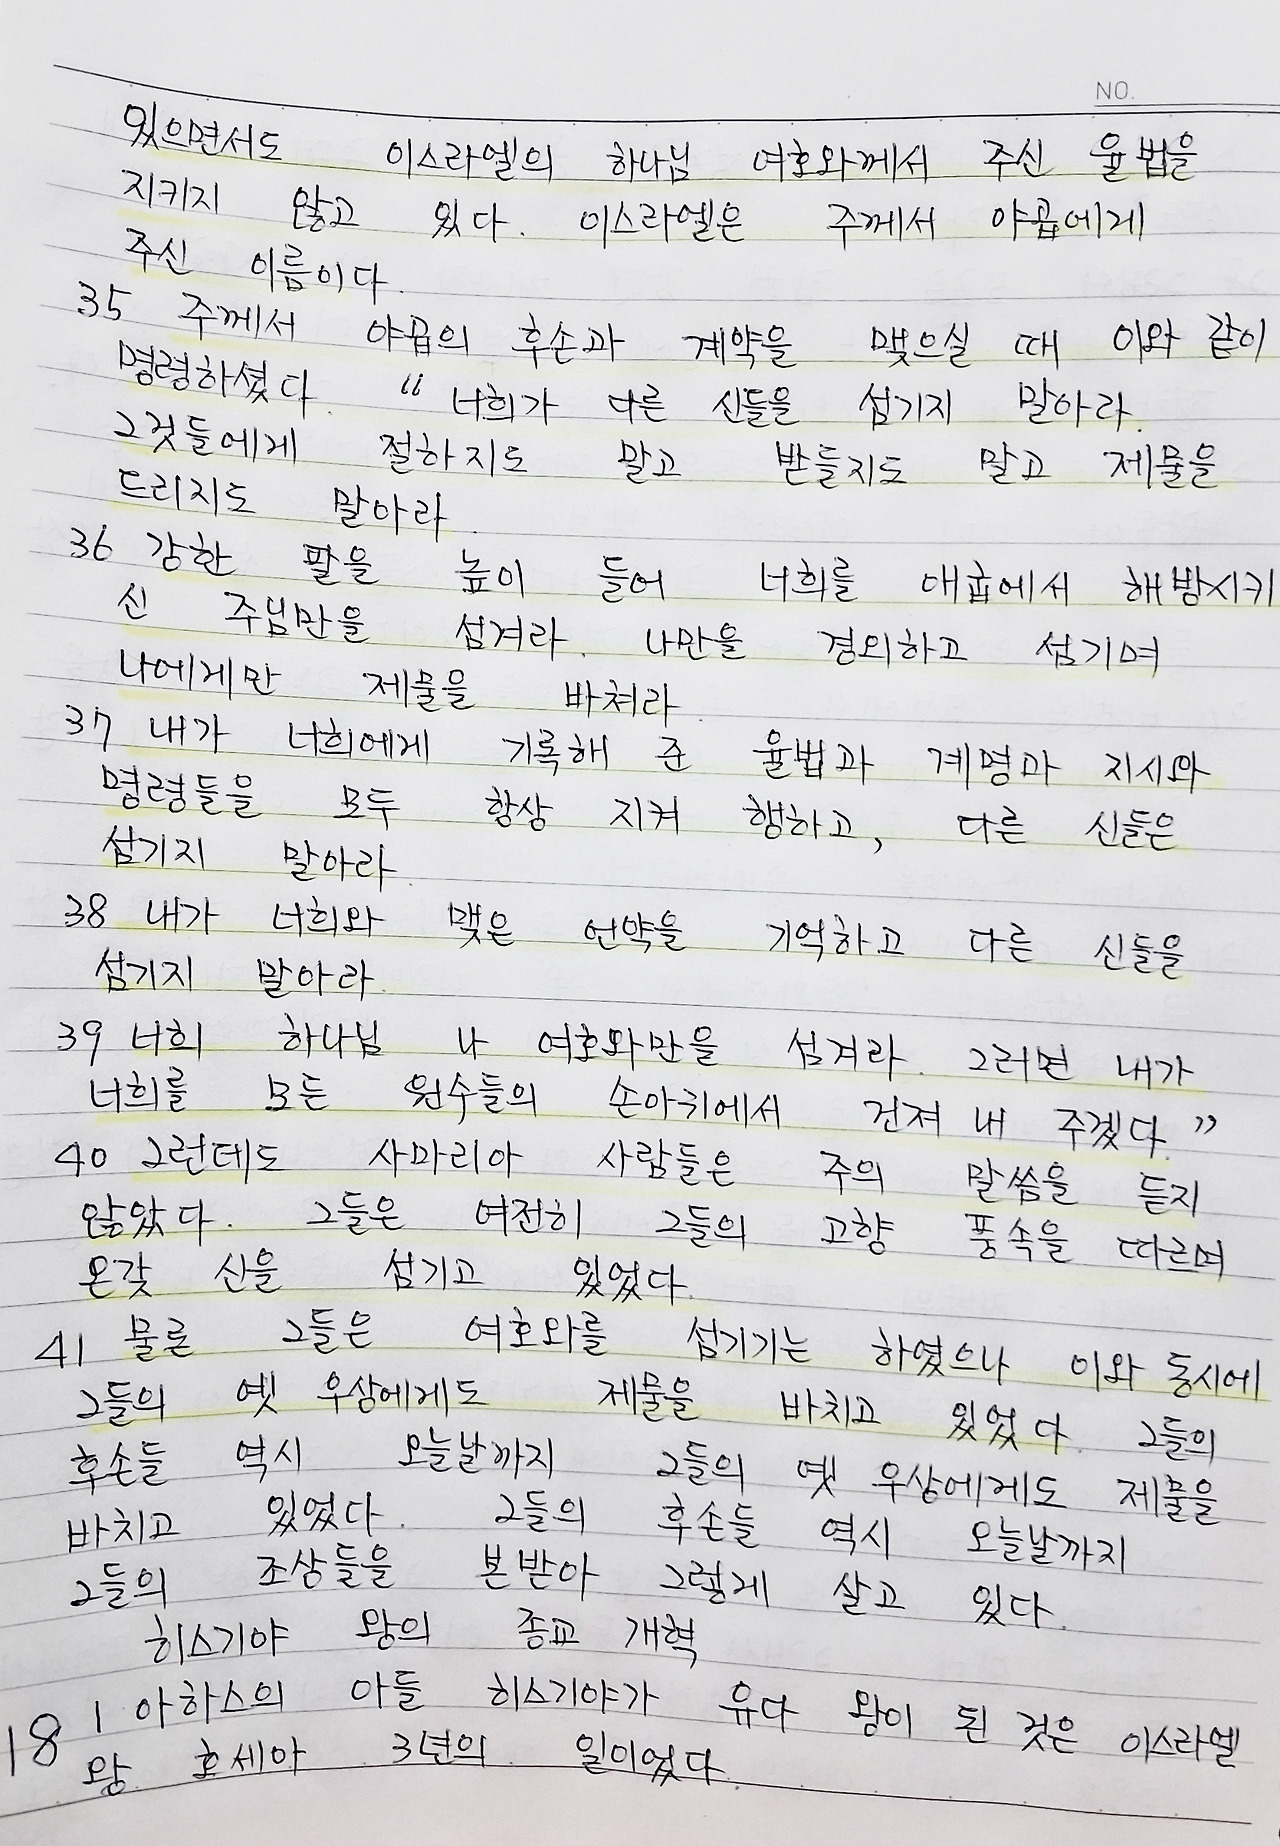 NO.
있으면서도 이스라엘의 하나님 여호와께서 주신 율법을
지키지 않고 있다. 이스라엘은 주께서 야곱에게
주신 이름이다.
35 주께서 야곱의 후손과 계약을 맺으실 때 이와 같이
명령하셨다. “너희가 다른 신들을 섬기지 말아라.
그것들에게 절하지도 말고 받들지도 말고 제물을
드리지도 말아라.
36 강한 팔을 높이 들어 너희를 애굽에서 해방시키
신 주님만을 섬겨라. 나만을 경외하고 섬기며
나에게만 제물을 바쳐라.
37 내가 너희에게 기록해 준 율법과 계명과 지시와
명령들을 모두 항상 지켜 행하고, 다른 신들은
섬기지 말아라.
38 내가 너희와 맺은 언약을 기억하고 다른 신들을
섬기지 말아라.
39 너희 하나님 나 여호와만을 섬겨라. 그러면 내가
너희를 모든 원수들의 손아귀에서 건져 내 주겠다.”
40 그런데도 사마리아 사람들은 주의 말씀을 듣지
않았다. 그들은 여전히 그들의 고향 풍속을 따르며
온갖 신을 섬기고 있었다.
41 물론 그들은 여호와를 섬기기는 하였으나 이와 동시에
그들의 옛 우상에게도 제물을 바치고 있었다. 그들의
후손들 역시 오늘날까지 그들의 옛 우상에게도 제물을
바치고 있었다. 그들의 후손들 역시 오늘날까지
그들의 조상들을 본받아 그렇게 살고 있다.
히스기야 왕의 종교 개혁
18 1 아하스의 아들 히스기야가 유다 왕이 된 것은 이스라엘
왕 호세아 3년의 일이었다.